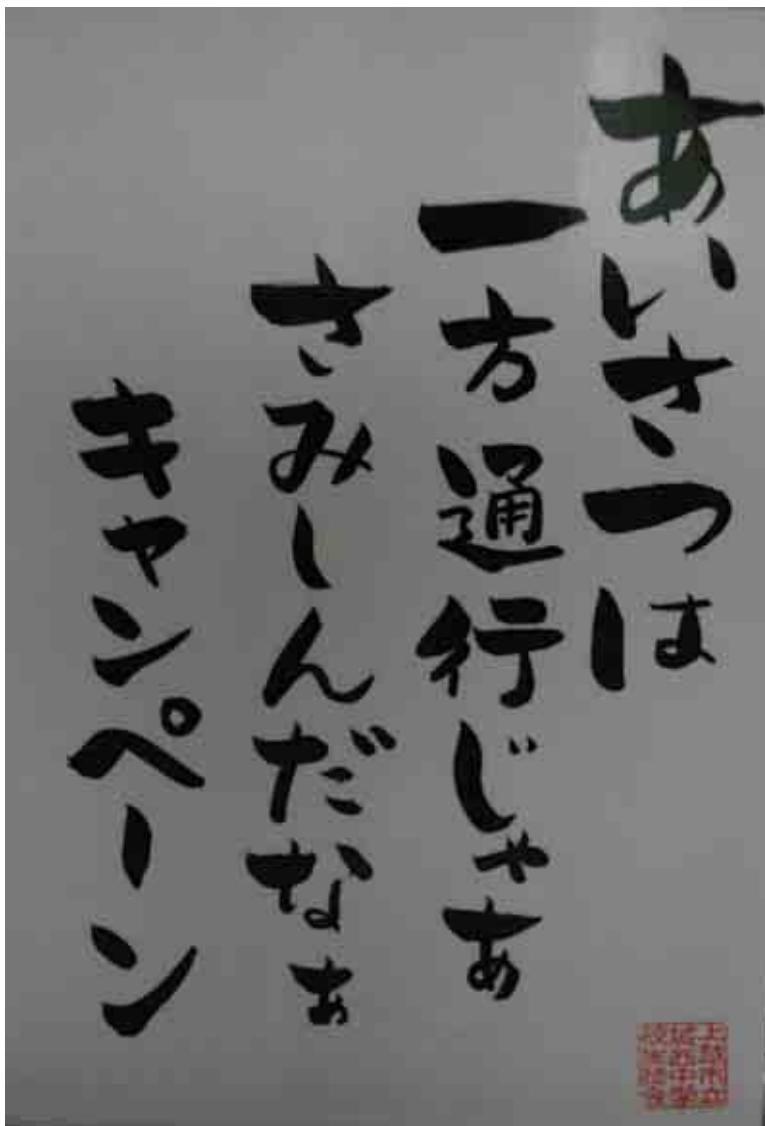 あいさつは
一方通行じゃあ
さみしんだなぁ
キャンペーン